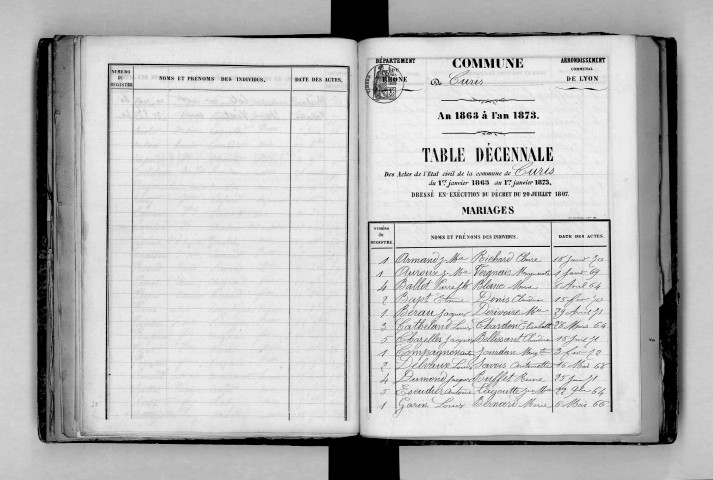 NUMÉRO DU REGISTRE.
NOMS ET PRÉNOMS DES INDIVIDUS,
DATE DES ACTES,
DÉPARTEMENT
RHONE
COMMUNE
De Curis
ARRONDISSEMENT
COMMUNAL
DE LYON
An 1863 à l'an 1873.
TABLE DÉCENNALE
Des Actes de l'Etat civil de la commune de Curis
du 1er janvier 1863 au 1er janvier 1873,
DRESSÉ EN EXÉCUTION DU DÉCRET DU 20 JUILLET 1807.
MARIAGES
NUMÉRO du REGISTRE.
NOMS ET PRÉNOMS DES INDIVIDUS.
DATE DES ACTES.
1 Armand Richard Claire 70
1 Vergnais 69
4 Ballet Pierre Blanc Marie 8 Avril 64
2 Bapt Etienne Denis Claudine 15 fev 70
1 Berau Jacques Derivoire 29 Avril 71
3 Catheland Louis Chardon Elisabeth 28 Mars 64
5 Chazelles Jacques Bellissant Claudine 15 71
1 Compagnon Jourdan 3 fev 72
2 Delvaux Louis Savoie Antoinette 26 Mai 68
4 Dumond Jacques Buffet 25 71
5 Escudier Antoine 22 9bre 64
1 Garin Louis Bernard Marie 6 Mai 66